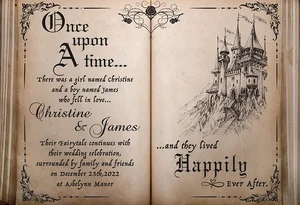 Once
upon
A time...
There was a girl named Christine
and a boy named James
who fell in love...
Christine
& James
Their Fairytale continues with
their wedding celebration,
surrounded by family and friends
on December 23th,2022
at Ashelynn Manor
...and they lived
Happily
Ever After.